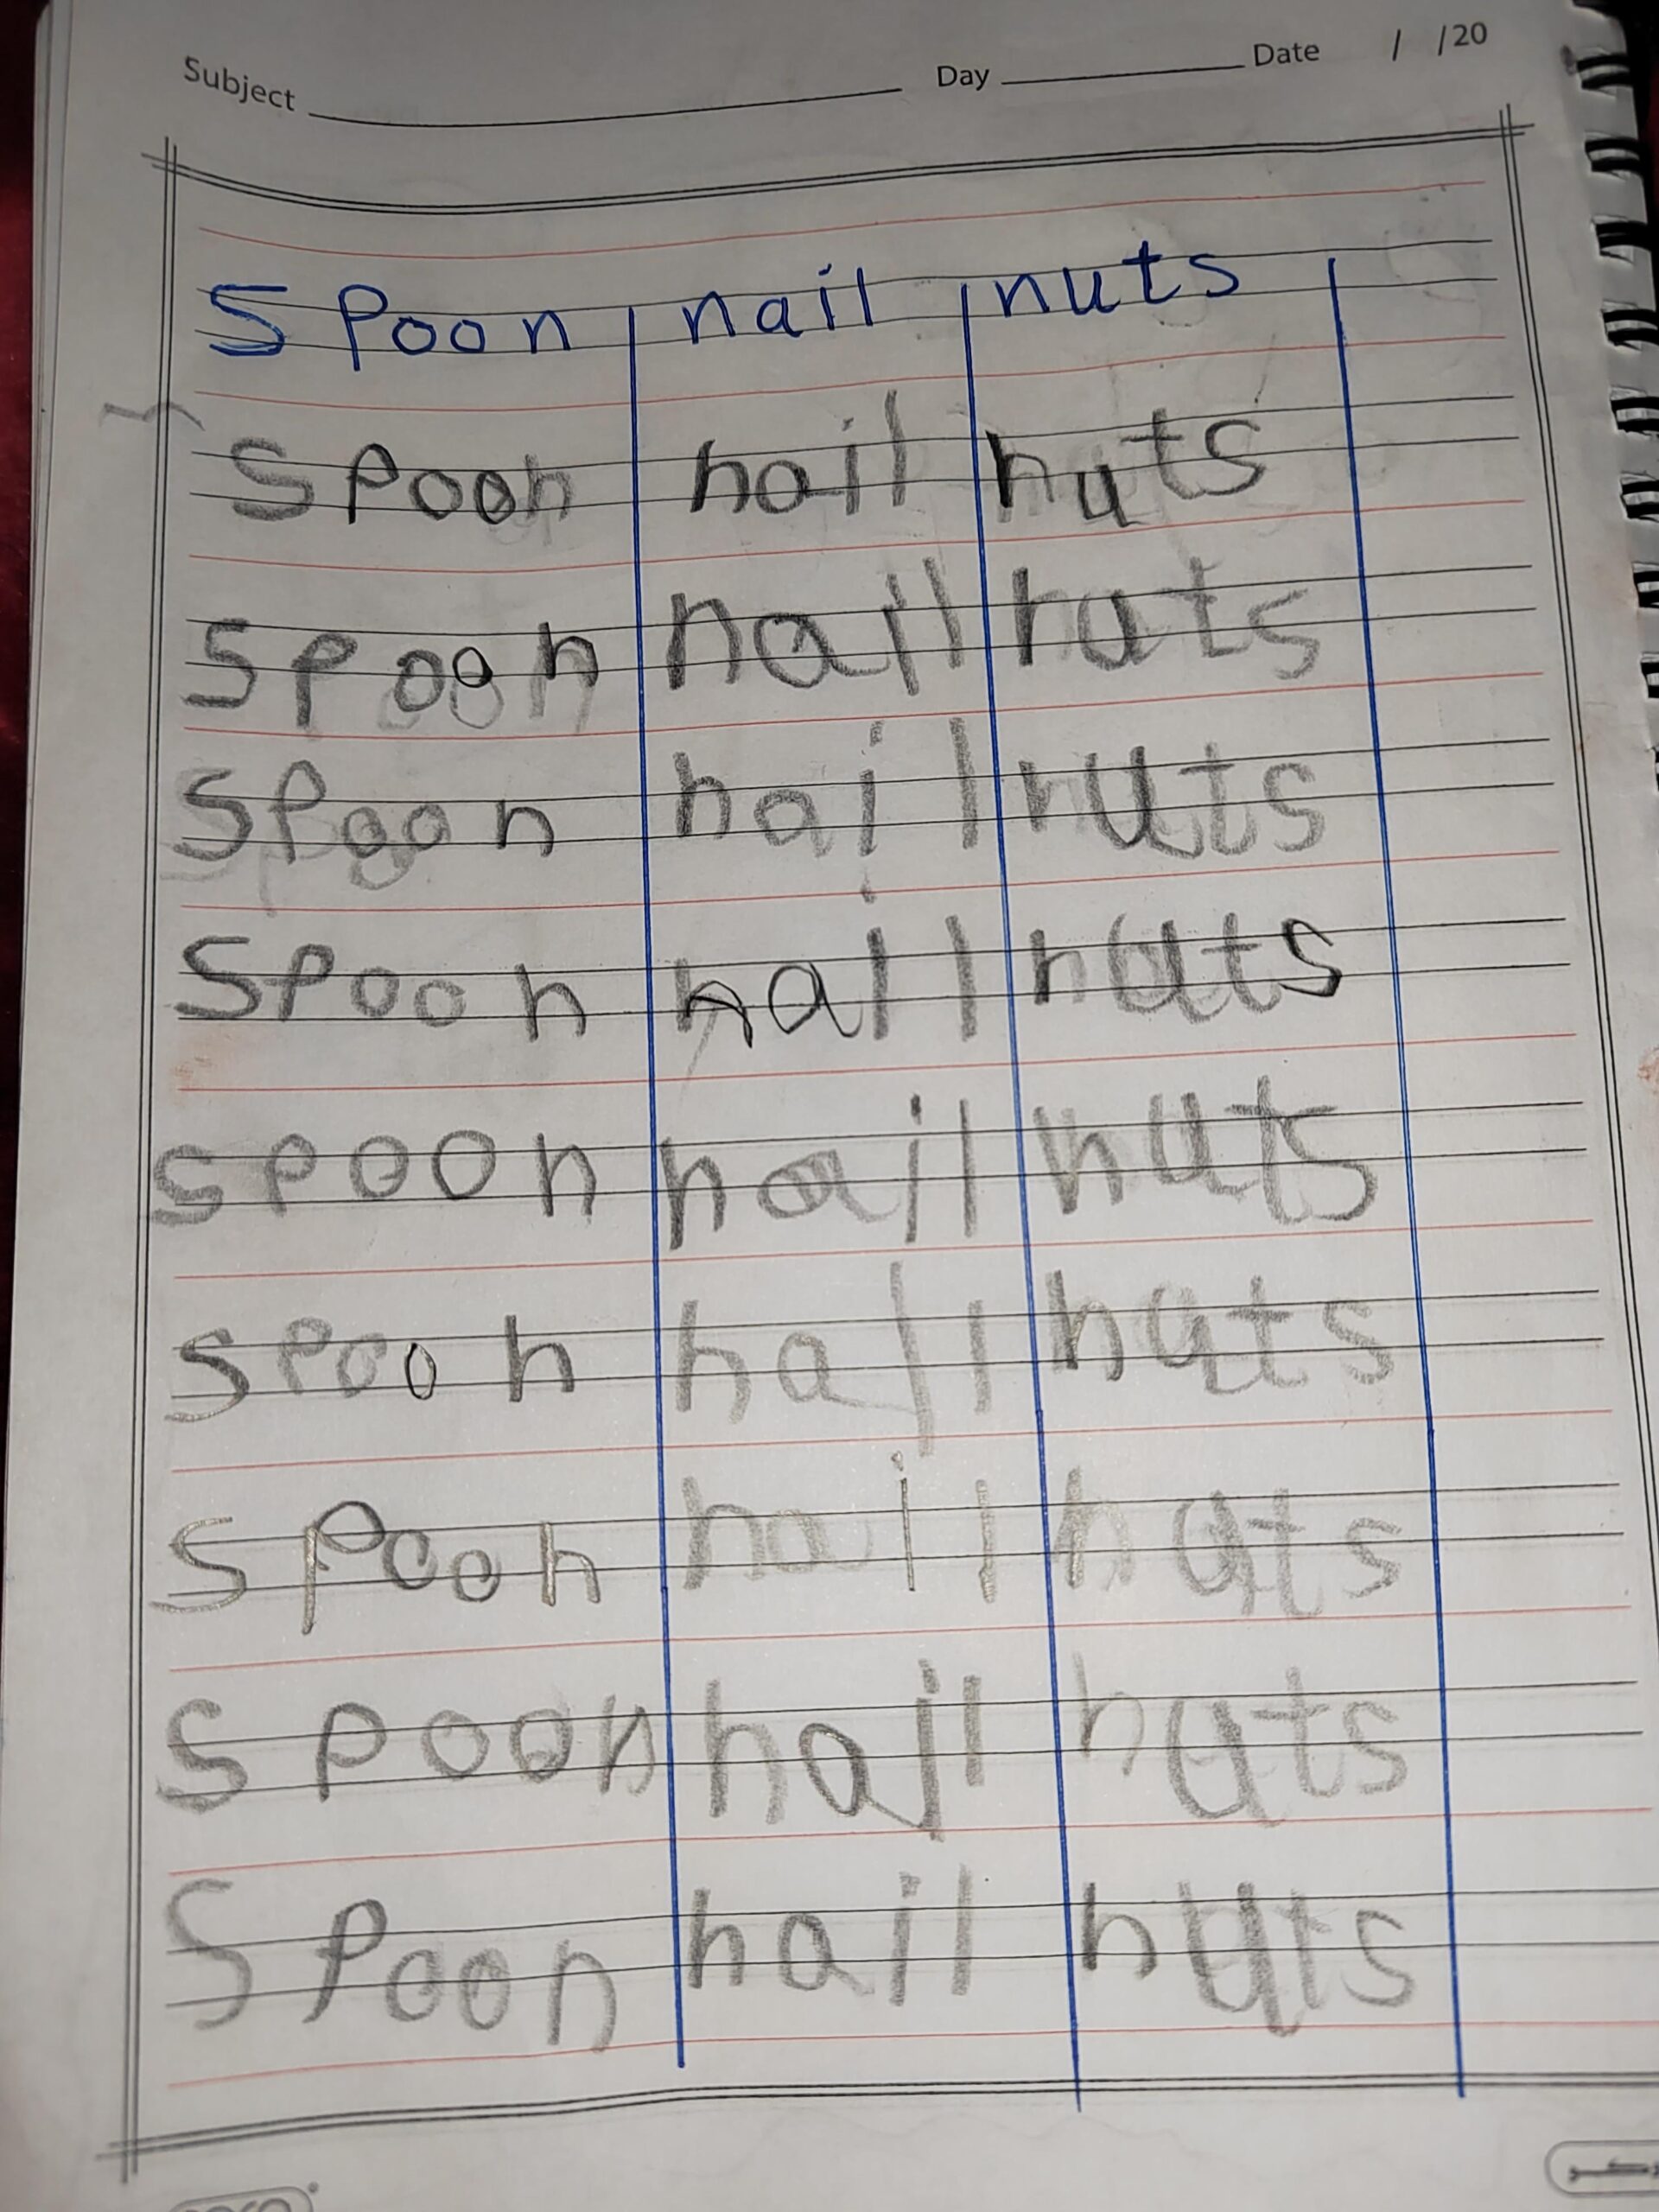 Subject Day Date / /20
spoon nail nuts
spoon nail nuts
spoon nail nuts
spoon nail nuts
spoon nail nuts
spoon nail nuts
spoon nail nuts
spoon nail nuts
spoon nail nuts
spoon nail nuts